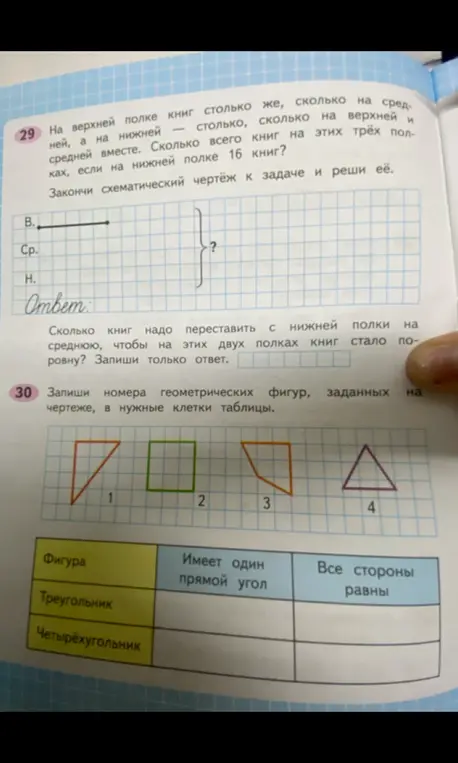 29 На верхней полке книг столько же, сколько на сред-
ней, а на нижней — столько, сколько на верхней и
средней вместе. Сколько всего книг на этих трёх пол-
ках, если на нижней полке 16 книг?
Закончи схематический чертёж к задаче и реши её.
В.
Ср.
?
Н.
Ответ:
Сколько книг надо переставить с нижней полки на
среднюю, чтобы на этих двух полках книг стало по-
ровну? Запиши только ответ.
30 Запиши номера геометрических фигур, заданных на
чертеже, в нужные клетки таблицы.
1 2 3 4
Фигура
Имеет один
прямой угол
Все стороны
равны
Треугольник
Четырёхугольник